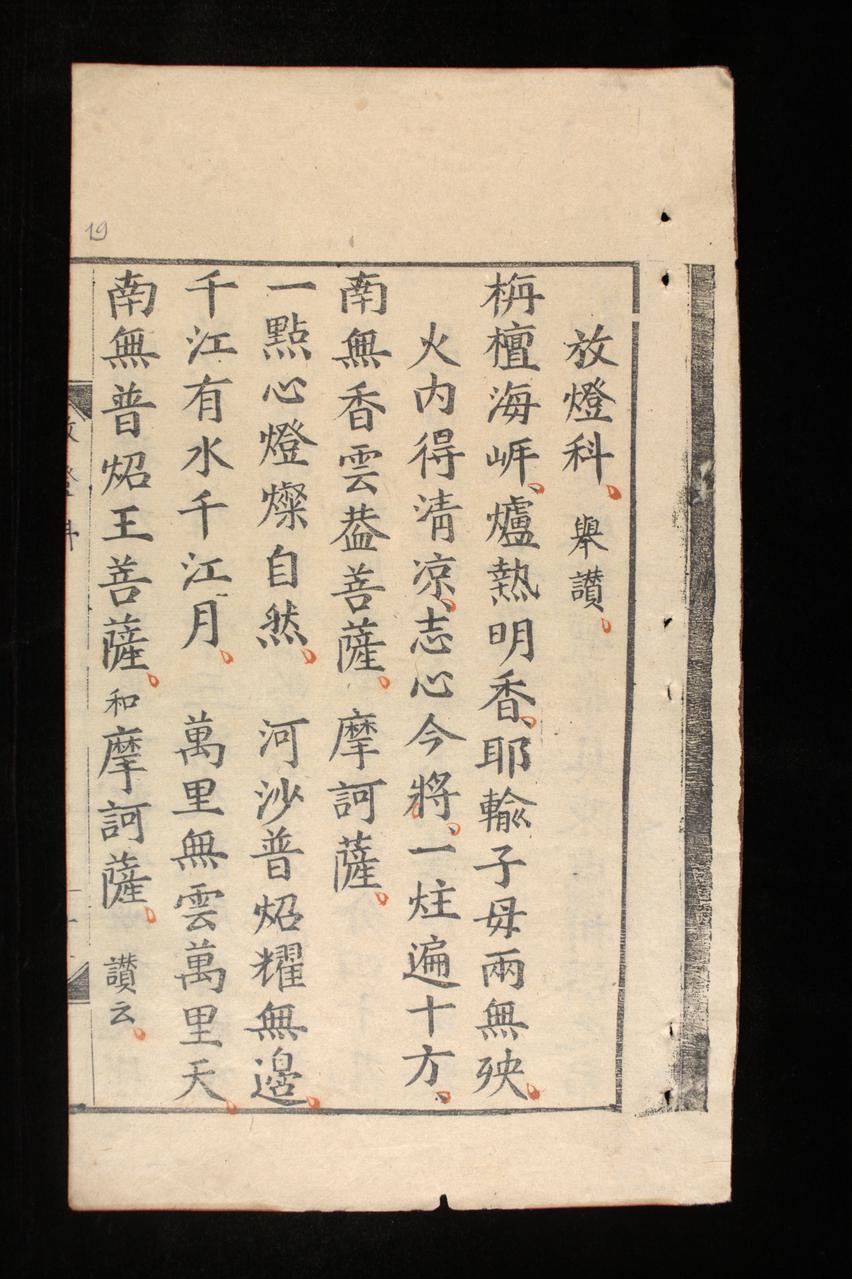 放燈科 舉讃
栴檀海岍爐熱明香耶輸子母兩無殃
火内得清凉志心今將一炷遍十方
南無香雲葢菩薩摩訶薩
一點心燈燦自然 河沙普炤耀無邊
千江有水千江月 萬里無雲萬里天
南無普炤王菩薩和摩訶薩 讃云
放燈科
19